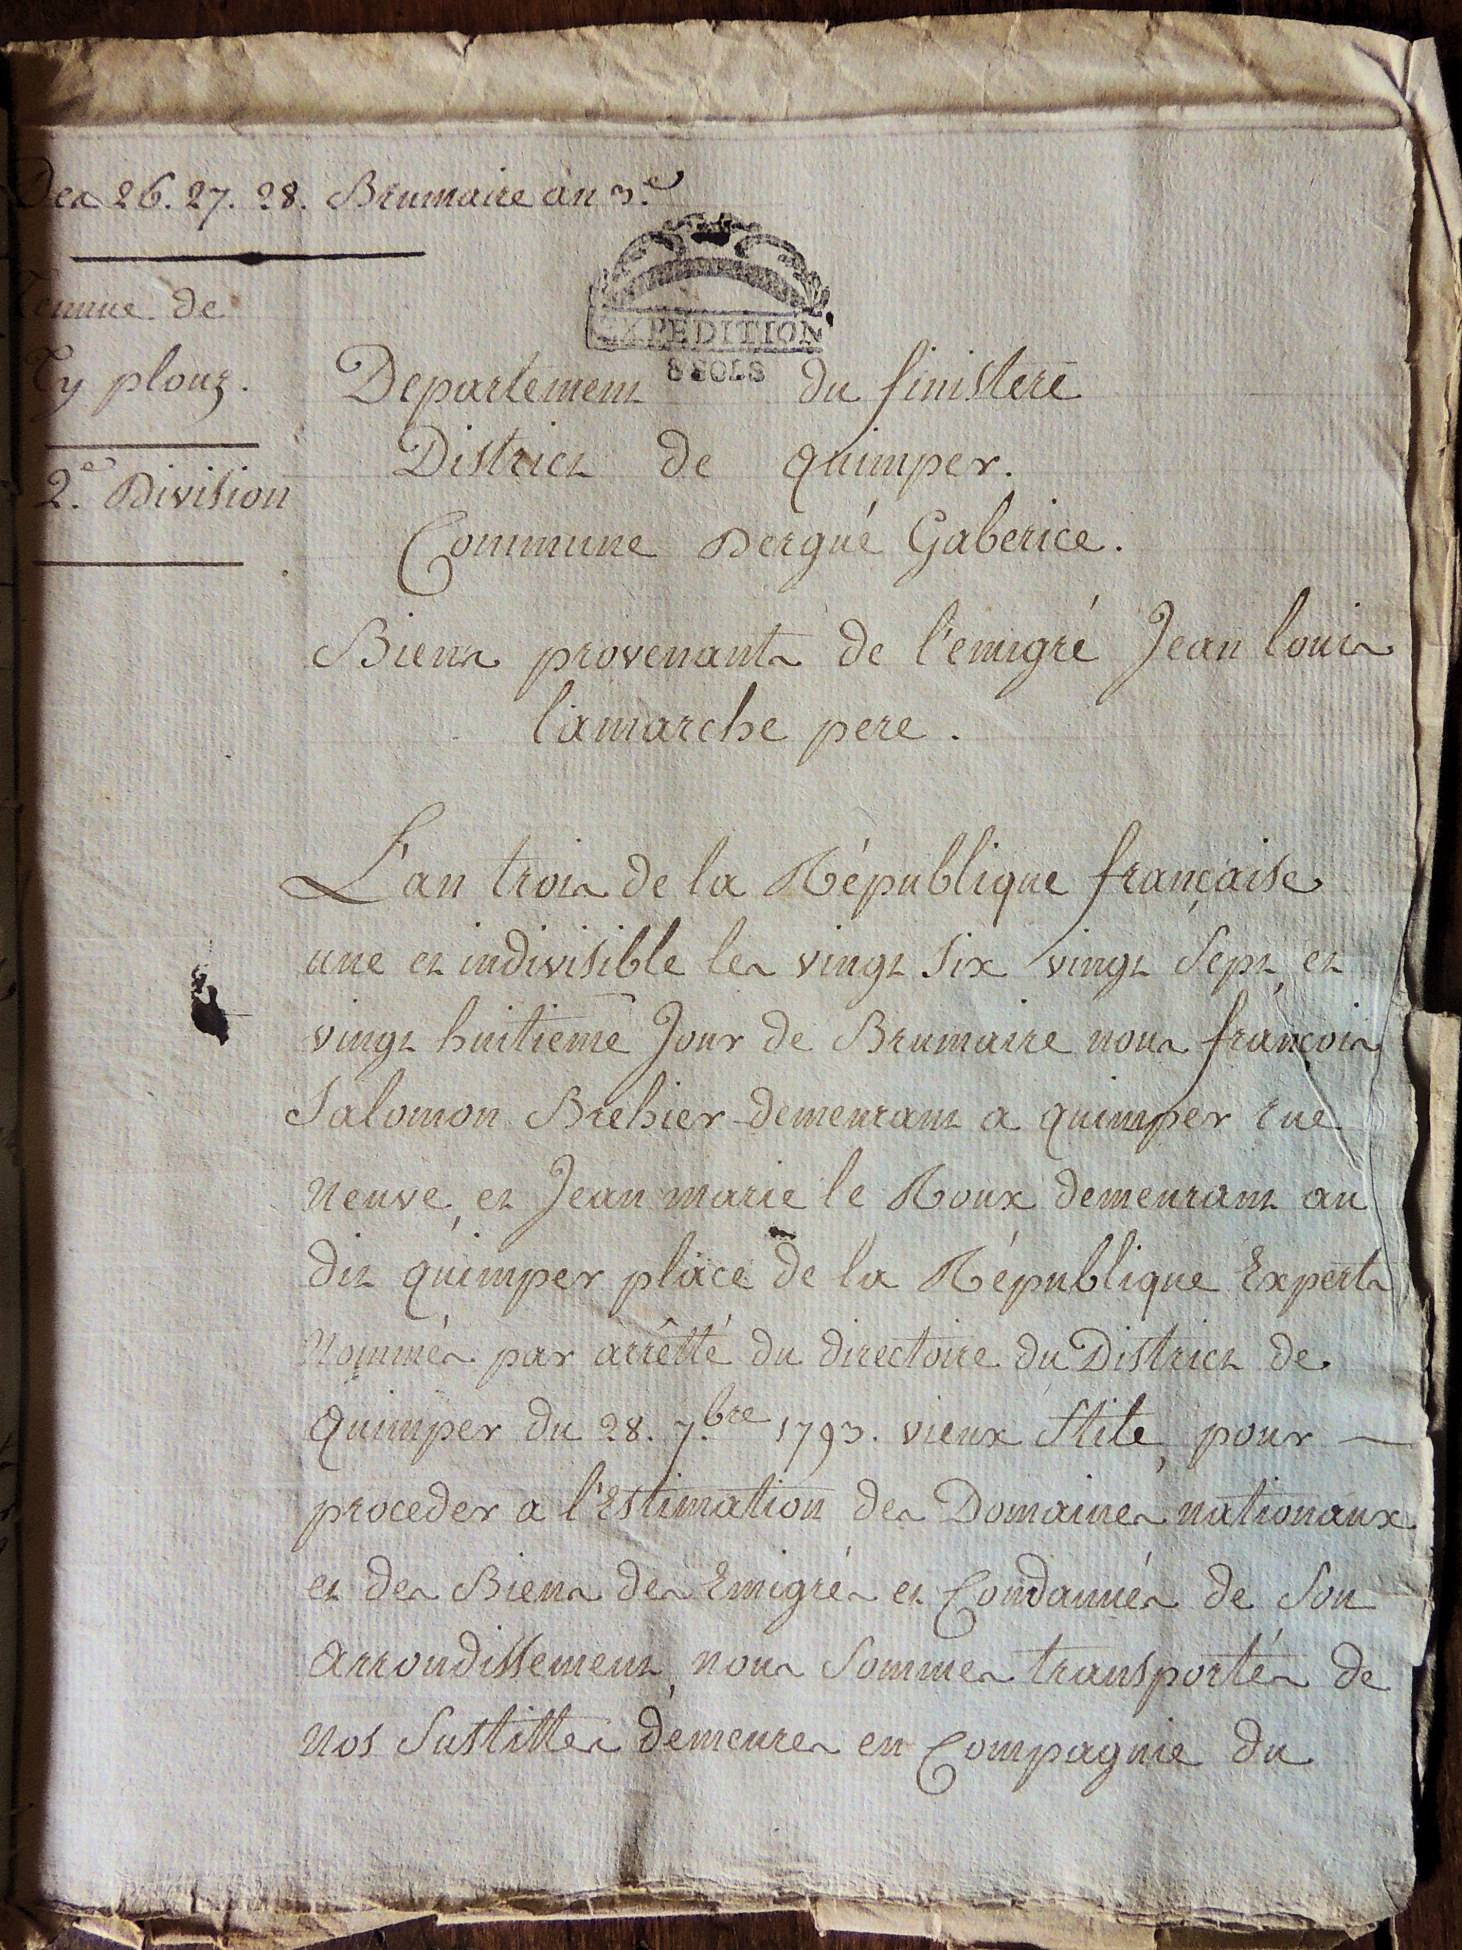 Des 26. 27. 28. Brumaire an 3.e
Tenue de
Ty plouz.
2.e Division
EXPEDITION
8 SOLS
Departement du finistere
District de quimper.
Commune Dergué Gaberice.
Biens provenants de l'emigré Jean louis
lamarche pere.
L'an trois de la République française
une et indivisible les vingt six vingt Sept, et
vingt huitieme Jour de Brumaire nous françois
Salomon Brehier demeurant a quimper rue
Neuve, et Jean marie le Roux demeurant au
dit quimper place de la République Experts
Nommés par arrêtté du directoire du District de
Quimper du 28. 7.bre 1793. vieux Stile, pour —
proceder a l'Estimation des Domaines nationaux
et des Biens des Emigrés et Condamnés de Son
Arrondissement, nous Sommes transportés de
Nos Sustittes demeures en Compagnie du